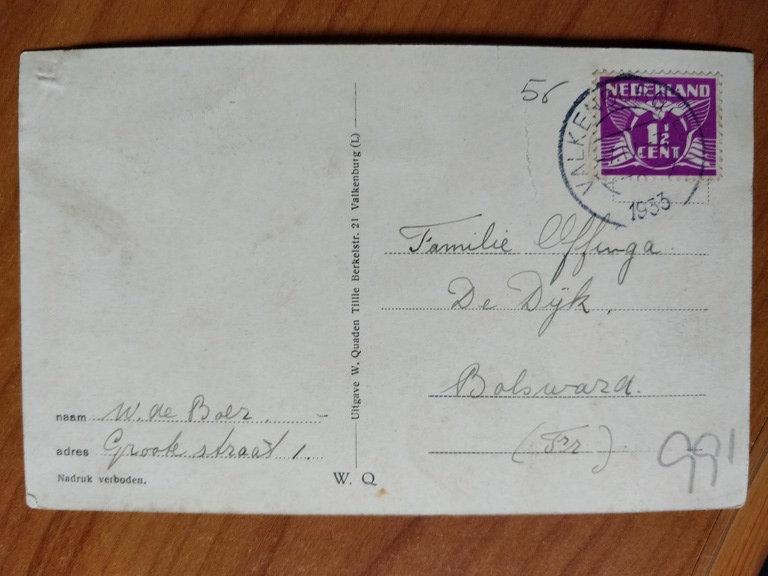 56
NEDERLAND
1½
CENT
VALKEN
1933
Familie Offinga
De Dijk,
Bolsward.
(Fr).
991
Uitgave W. Quaden Tillie Berkelstr. 21 Valkenburg (L)
naam W. de Boer.
adres Groote straat 1.
Nadruk verboden.
W. Q